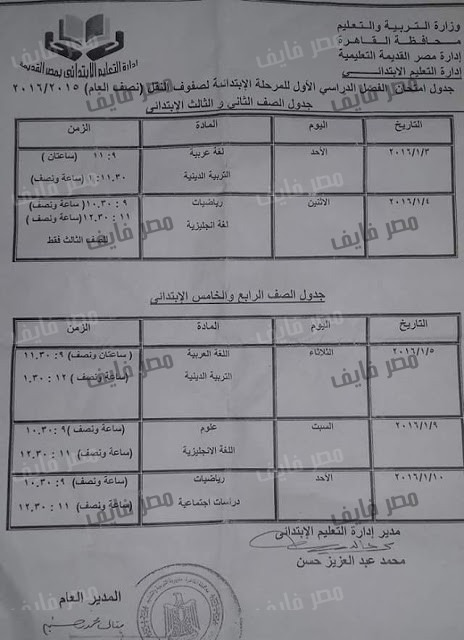 وزارة التربية والتعليم
محافظة القاهرة
إدارة مصر القديمة التعليمية
إدارة التعليم الابتدائي
إدارة التعليم الابتدائى بمصر القديمة
جدول امتحان الفصل الدراسي الأول للمرحلة الإبتدائية لصفوف النقل (نصف العام) ٢٠١٦/٢٠١٥
جدول الصف الثاني و الثالث الإبتدائي
التاريخ اليوم المادة الزمن
٢٠١٦/١/٣ الأحد لغة عربية ٩ : ١١ (ساعتان)
التربية الدينية ١١.٣٠ : ١ (ساعة ونصف)
٢٠١٦/١/٤ الاثنين رياضيات ٩ : ١٠.٣٠ (ساعة ونصف)
لغة انجليزية ١١ : ١٢.٣٠ (ساعة ونصف)
للصف الثالث فقط
جدول الصف الرابع والخامس الإبتدائي
التاريخ اليوم المادة الزمن
٢٠١٦/١/٥ الثلاثاء اللغة العربية ٩ : ١١.٣٠ (ساعتان ونصف)
التربية الدينية ١٢ : ١.٣٠ (ساعة ونصف)
٢٠١٦/١/٩ السبت علوم ٩ : ١٠.٣٠ (ساعة ونصف)
اللغة الانجليزية ١١ : ١٢.٣٠ (ساعة ونصف)
٢٠١٦/١/١٠ الأحد رياضيات ٩ : ١٠.٣٠ (ساعة ونصف)
دراسات اجتماعية ١١ : ١٢.٣٠ (ساعة ونصف)
مدير إدارة التعليم الإبتدائى
محمد عبد العزيز حسن
المدير العام
مصر فايف